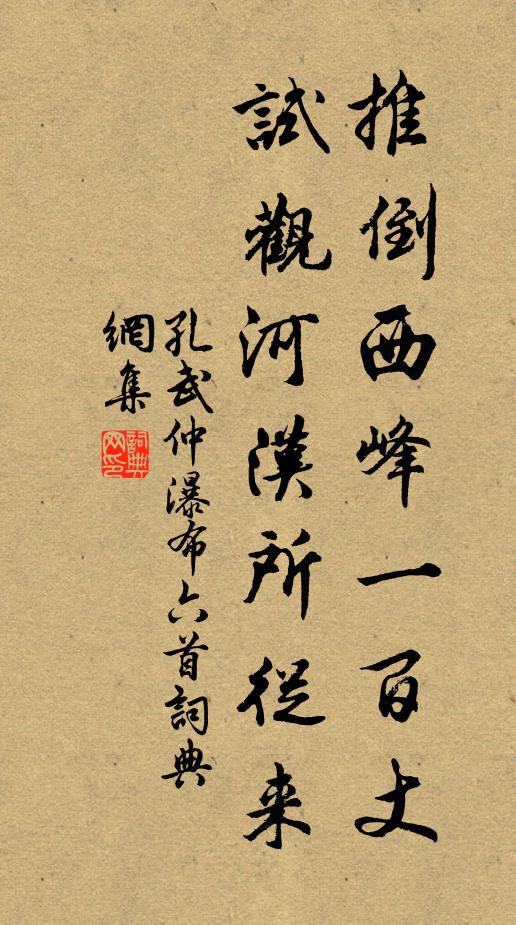 推倒西峰一百丈
試觀河漢所從来
孔武仲瀑布六首詞典
網集
詞典網印